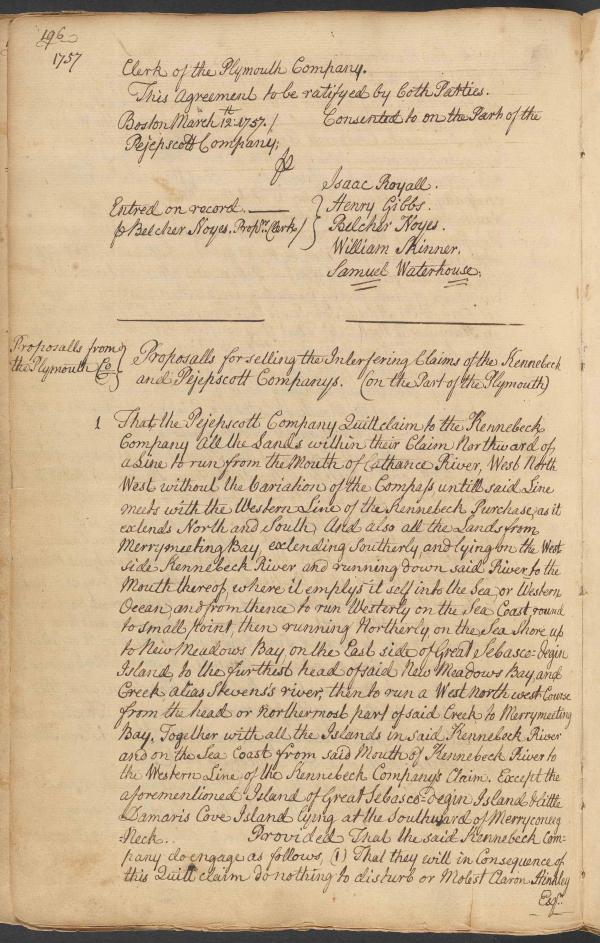 196
1757
Clerk of the Plymouth Company.
This Agreement to be ratifyed by both Parties.
Boston March 12th: 1757./ Consented to on the Part of the
Pejepscott Company;
Isaac Royall.
Henry Gibbs.
Entred on record.
Belcher Noyes.
Belcher Noyes. Propr. Clerk/
William Skinner.
Samuel Waterhouse.
Proposalls from
the Plymouth Co
Proposalls for selling the Interfering Claims of the Kennebeck
and Pejepscott Companys. (on the Part of the Plymouth)
1 That the Pejepscott Company Quitt claim to the Kennebeck
Company all the Lands within their Claim Northward of
a Line to run from the Mouth of Cathance River, West North
West without the Variation of the Compass untill said Line
meets with the Western Line of the Kennebeck Purchase, as it
extends North and South, And also all the Lands from
Merrymeeting Bay, extending Southerly and lying on the West
side Kennebeck River and running down said River to the
Mouth thereof, where it emptys it self into the Sea, or Western
Ocean, and from thence to run Westerly on the Sea Coast round
to small point, then running Northerly on the Sea shore, up
to New Meadows Bay, on the East side of Great Sebasco-degin
Island, to the furthest head of said New Meadows Bay, and
Creek alias Stevens's river, then to run a West North west Course
from the head or Northermost part of said Creek to Merrymeeting
Bay, Together with all the Islands in said Kennebeck River
and on the Sea Coast from said Mouth of Kennebeck River to
the Western Line of the Kennebeck Company's Claim. Except the
aforementioned Island of Great Sebasco-degin Island & little
Damaris Cove Island lying at the Southward of Merryconeg
-Neck. Provided That the said Kennebeck Com-
pany do engage as follows, (1) That they will in Consequence of
this Quitt claim do nothing to disturb or Molest Aaron Hinkley
Esqr.